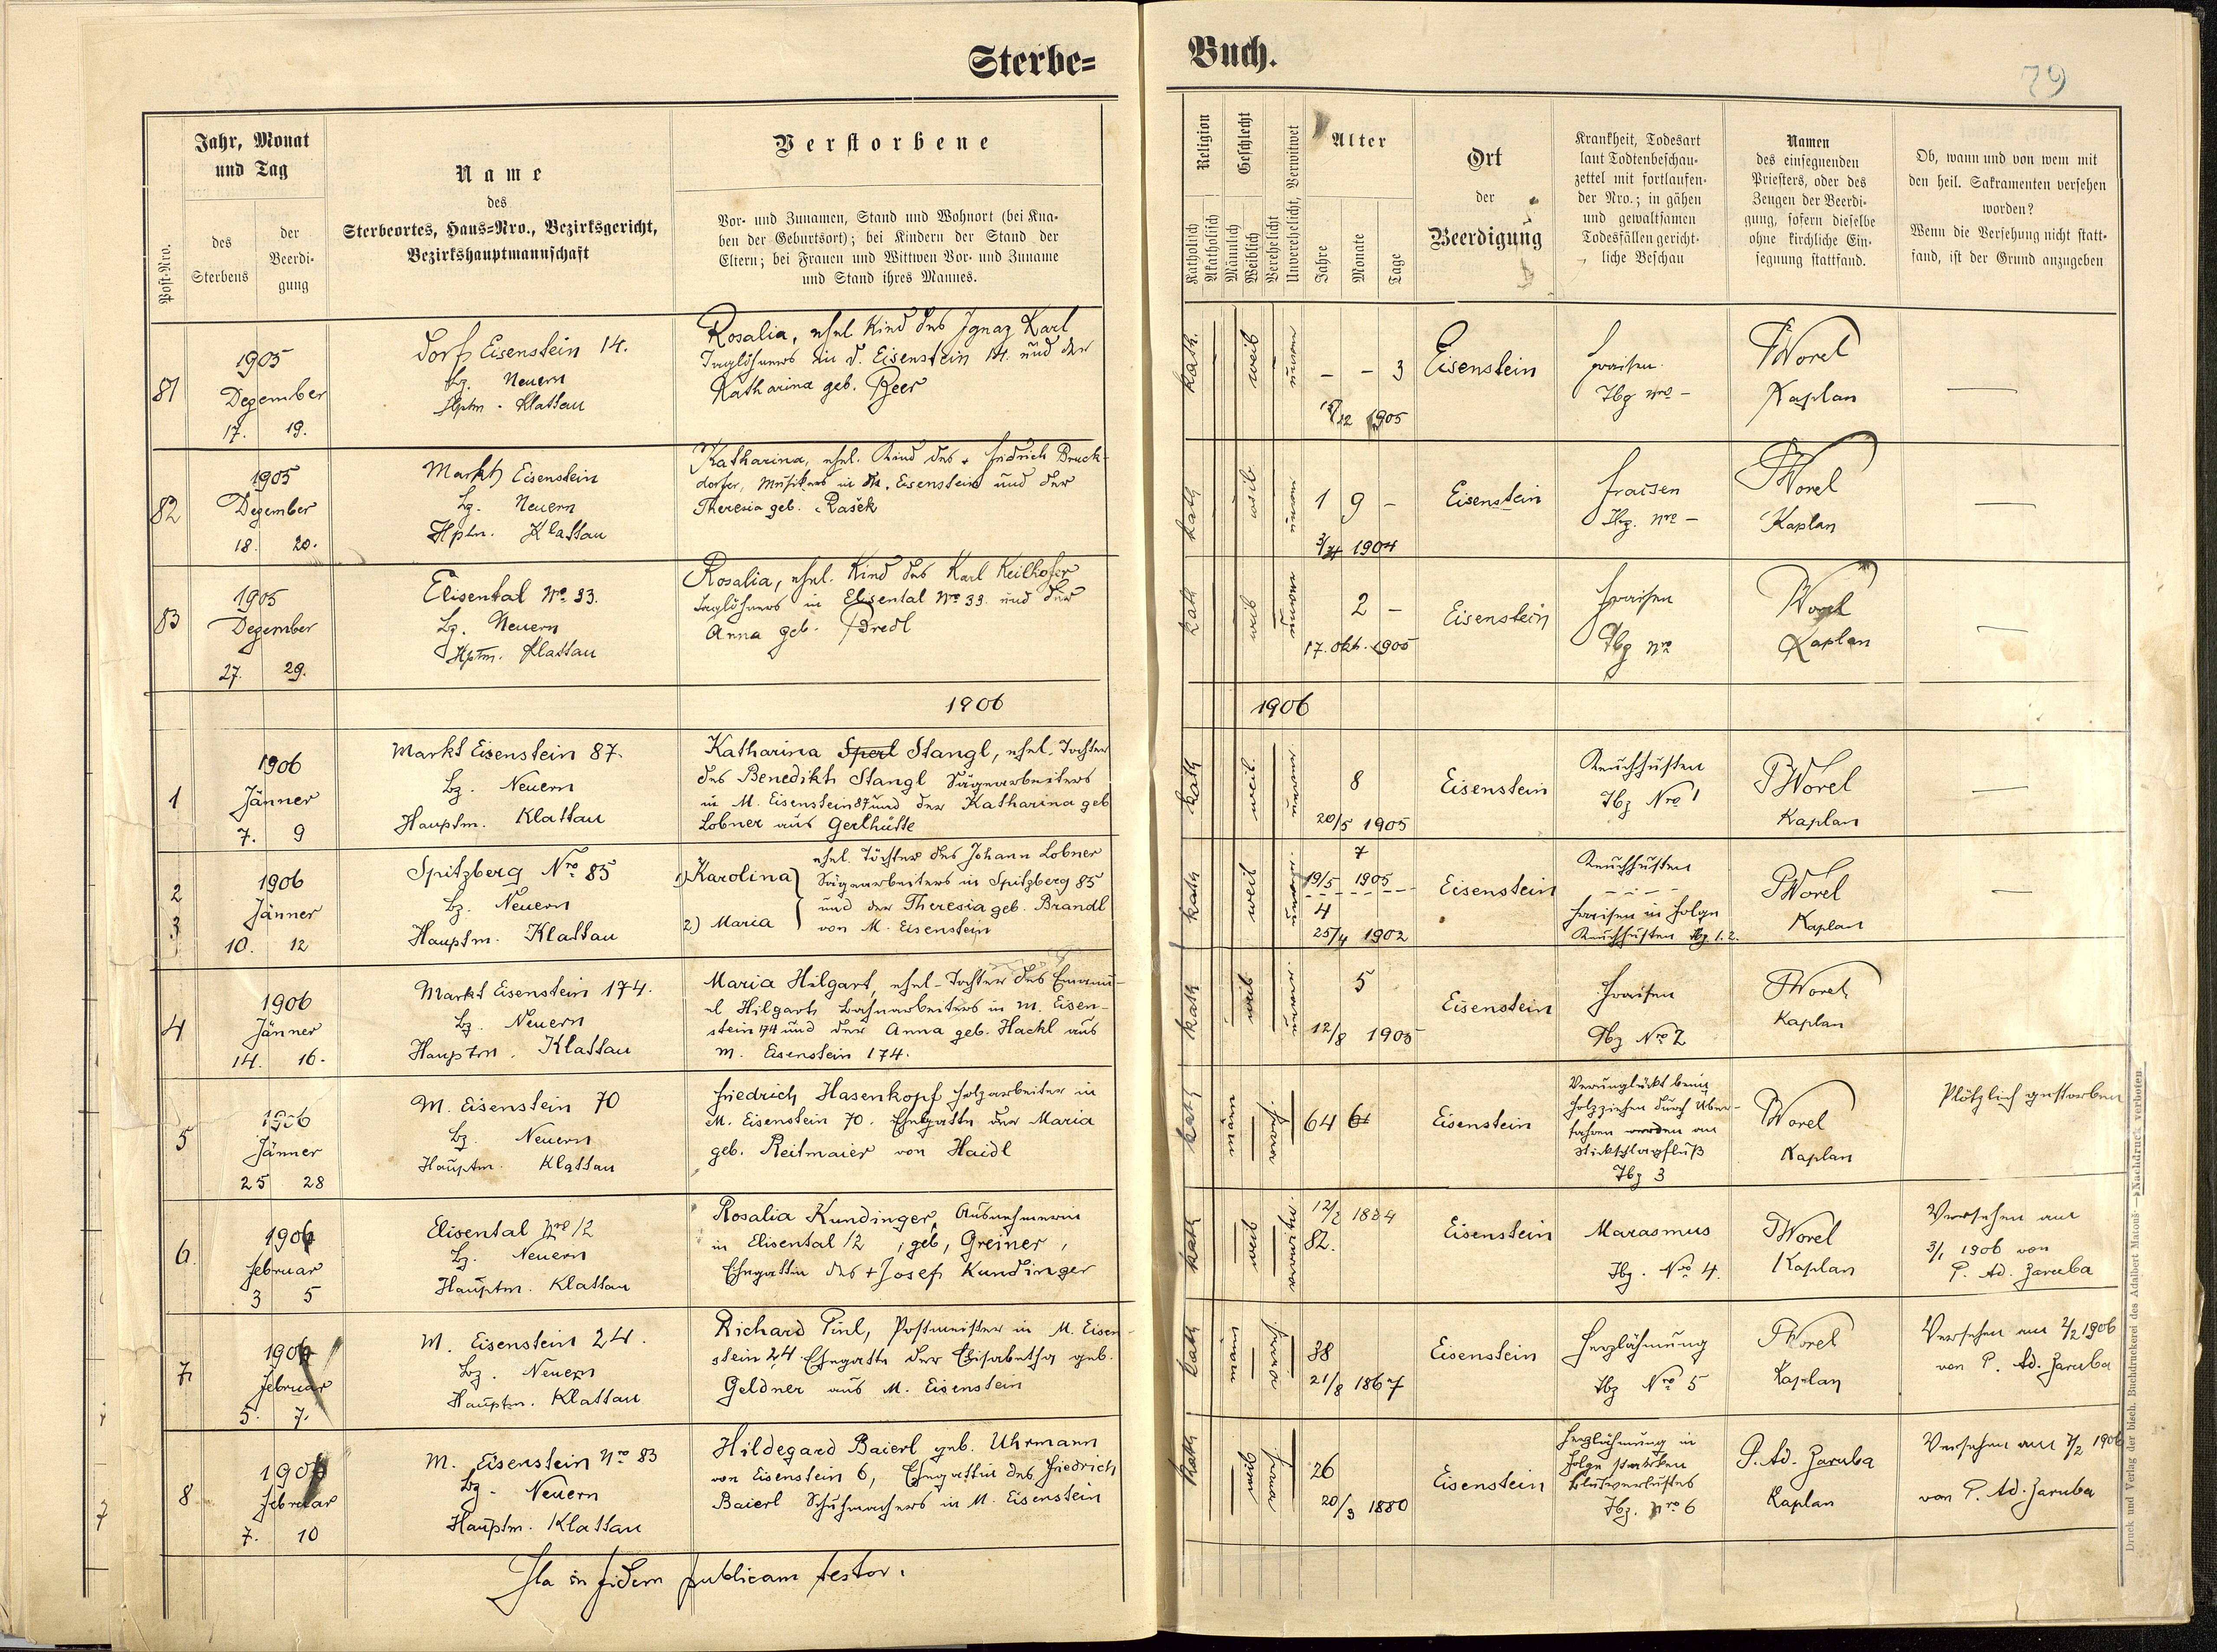 Sterbe= Buch.
79
Post-Nro.
Jahr, Monat
und Tag
des
Sterbens
der
Beerdi-
gung
Name
des
Sterbeortes, Haus=Nro., Bezirksgericht,
Bezirkshauptmannschaft
Verstorbene
Vor- und Zunamen, Stand und Wohnort (bei Kna-
ben der Geburtsort); bei Kindern der Stand der
Eltern; bei Frauen und Wittwen Vor- und Zuname
und Stand ihres Mannes.
Religion
Katholisch
Akatholisch
Geschlecht
Männlich
Weiblich
Verehelicht
Unverehelicht, Verwitwet
Alter
Jahre
Monate
Tage
Ort
der
Beerdigung
Krankheit, Todesart
laut Todtenbeschau-
zettel mit fortlaufen-
der Nro.; in gähen
und gewaltsamen
Todesfällen gericht-
liche Beschau
Namen
des einsegnenden
Priesters, oder des
Zeugen der Beerdi-
gung, sofern dieselbe
ohne kirchliche Ein-
segnung stattfand.
Ob, wann und von wem mit
den heil. Sakramenten versehen
worden?
Wenn die Versehung nicht statt-
fand, ist der Grund anzugeben
81
1905
Dezember
17. 19.
Dorf Eisenstein 14.
Bz. Neuern
Hptm. Klattau
Rosalia, ehel Kind des Ignaz Karl
Taglöhners in D. Eisenstein 14. und der
Katharina geb. Beer
kath.
weib
- - 3
15/12 1905
Eisenstein
Fraisen.
Tbz Nro -
PWorel
Kaplan
—
82
1905
Dezember
18. 20.
Markt Eisenstein
Bz. Neuern
Hptm. Klattau
Katharina, ehel. Kind des + Fridrich Bruck-
dorfer, Musikers in M. Eisenstein und der
Theresia geb. Rašek
kath
weib
1 9 -
1904
Eisenstein
Fraisen
Tbz. Nro -
PWorel
Kaplan
—
83
1905
Dezember
27. 29.
Elisental No 33.
Bz. Neuern
Hptm. Klattau
Rosalia, ehel. Kind des Karl Keilhofer
Taglöhners in Elisental No 33. und der
Anna geb. Bredl
kath
weib
2 -
17. Okt. 1905
Eisenstein
Fraisen
Tbz Nro
PWorel
Kaplan
—
1906
1906
1
1906
Jänner
7. 9
Markt Eisenstein 87.
Bz. Neuern
Hauptm. Klattau
Katharina Sperl Stangl, ehel. Tochter
des Benedikt Stangl Sägearbeiters
in M. Eisenstein 87 und der Katharina geb
Lobner aus Gerlhütte
kath
weib
8
20/5 1905
Eisenstein
Keuchhusten
Tbz Nro 1
PWorel
Kaplan
—
2
3
1906
Jänner
10. 12
Spitzberg Nro 85
Bz. Neuern
Hauptm. Klattau
1) Karolina
2) Maria
ehel. Töchter des Johann Lobner
Sägearbeiters in Spitzberg 85
und der Theresia geb. Brandl
von M. Eisenstein
kath
weib
7
19/5 1905
4
25/4 1902
Eisenstein
Keuchhusten
Fraisen in Folge
Keuchhusten Tbz 1. 2.
PWorel
Kaplan
—
4
1906
Jänner
14. 16.
Markt Eisenstein 174.
Bz. Neuern
Hauptm. Klattau
Maria Hilgart, ehel. Tochter des Emanu-
el Hilgart Bahnarbeiters in M. Eisen-
stein 174 und der Anna geb. Hackl aus
M. Eisenstein 174.
kath
weib
5
12/8 1905
Eisenstein
Fraisen
Tbz Nro 2
PWorel
Kaplan
5
1906
Jänner
25 28
M. Eisenstein 70
Bz. Neuern
Hauptm. Klattau
Friedrich Hasenkopf Holzarbeiter in
M. Eisenstein 70. Ehegatte der Maria
geb. Reitmaier von Haidl
kath
männ
64
Eisenstein
Verunglückt beim
Holzziehen durch Über-
fahren werden an
Stickschlagfluß
Tbz 3
PWorel
Kaplan
Plötzlich gestorben
6.
1906
Februar
3 5
Elisental Nro 12
Bz. Neuern
Hauptm. Klattau
Rosalia Kundinger, Ausnehmerin
in Elisental 12, geb, Greiner,
Ehegattin des + Josef Kundinger
kath
weib
82.
Eisenstein
Marasmus
Tbz. Nro 4.
PWorel
Kaplan
Versehen am
3/1 1906 von
P. Ad. Jaruba
7.
1906
Februar
5. 7.
M. Eisenstein 24.
Bz. Neuern
Hauptm. Klattau
Richard Pinl, Postmeister in M. Eisen-
stein 24 Ehegatte der Elisabetha geb.
Geldner aus M. Eisenstein
kath
männ
38
21/8 1867
Eisenstein
Herzlähmung
Tbz Nro 5
PWorel
Kaplan
Versehen am 2/2 1906
von P. Ad. Jaruba
8.
1906
Februar
7. 10
M. Eisenstein Nro 83
Bz. Neuern
Hauptm. Klattau
Hildegard Baierl geb. Uhrmann
von Eisenstein 6, Ehegattin des Friedrich
Baierl Schuhmachers in M. Eisenstein
kath
26
20/3 1880
Eisenstein
Herzlähmung in
Folge starken
Blutverlustes
Tbz. Nro 6
P. Ad. Jaruba
Kaplan
Versehen am 7/2 1906
von P. Ad. Jaruba
Ita in fidem publicam testor.
Druck und Verlag der bisch. Buchdruckerei des Adalbert Matouš. Nachdruck verboten